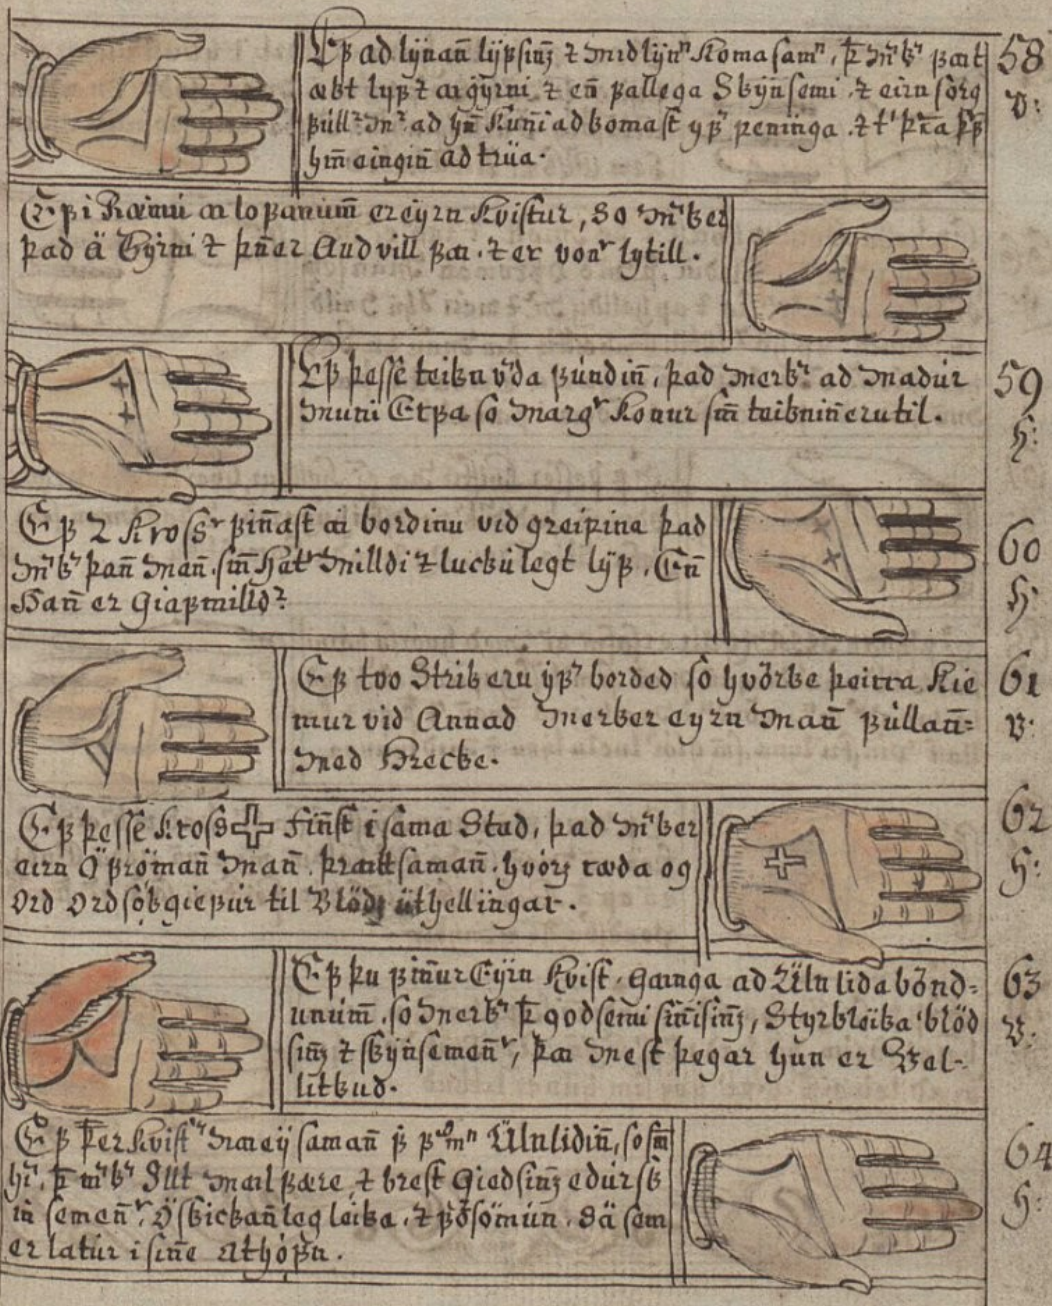 Ef ad lÿnan̄ lÿfsin̄z ⁊ midlÿnⁿ koma samⁿ, þ̄ mʳkʳ fatt
ækt lijf ⁊ argÿrni, ⁊ en̄ fallega Skÿnsemi ⁊ eirn sörg
full² mʳ ad hn̄ kun̄i ad komast ÿfʳ peninga
hm̄ eingin̄ ad trüa.
58
v:
Ef i Ræmu a lofanum̄ er eÿrn kvistur, so mʳker
þad ä kÿrni ⁊ þn̄ er Aud vill fa. ⁊ er vonʳ lytill.
Ef þesse teikn vʳda fundin̄, þad merkʳ ad madur
muni Eckta so margʳ konur sm̄ teiknin̄ eru til.
59
h:
Ef 2 krossʳ fin̄ast a bordinu vid greipina þad
mʳkʳ þan̄ man̄ sm̄ hefʳ milldi ⁊ luckulegt lÿf. En̄
Han̄ er Giafmilldʳ
60
h:
Ef tvo Strik eru ÿfʳ borded so hvörke þeirra kie
mur vid Annad merker eÿrn man̄ fullan̄
med Hrecke.
61
v:
Ef þesse kross fin̄st i sama Stad, þad mʳker
eirn Öfröman̄ man̄ þrættsaman̄ hvörz ræda og
Ord Ordsök giefur til Blödz üthellingar.
62
h:
Ef þu fin̄ur Eÿrn kvist ganga ad Üln lida bönd-
unum̄ so merkʳ þ̄ godsemi sin̄isin̄z, Styrkleika blöd
sin̄z ⁊ skÿnsemen̄ʳ, þa mest þegar hun er Vel-
litkud.
63
v:
Ef þ̄er kvistʳ saman̄ Ülnlidin̄, so sm̄
hʳ, þ̄ mʳkʳ Illt malfære ⁊ brest Giedsin̄z edur sk
in semen̄ʳ, Öskickan̄leg leika, ⁊ sä sem
er latur i sin̄e Athöfn.
64
h: